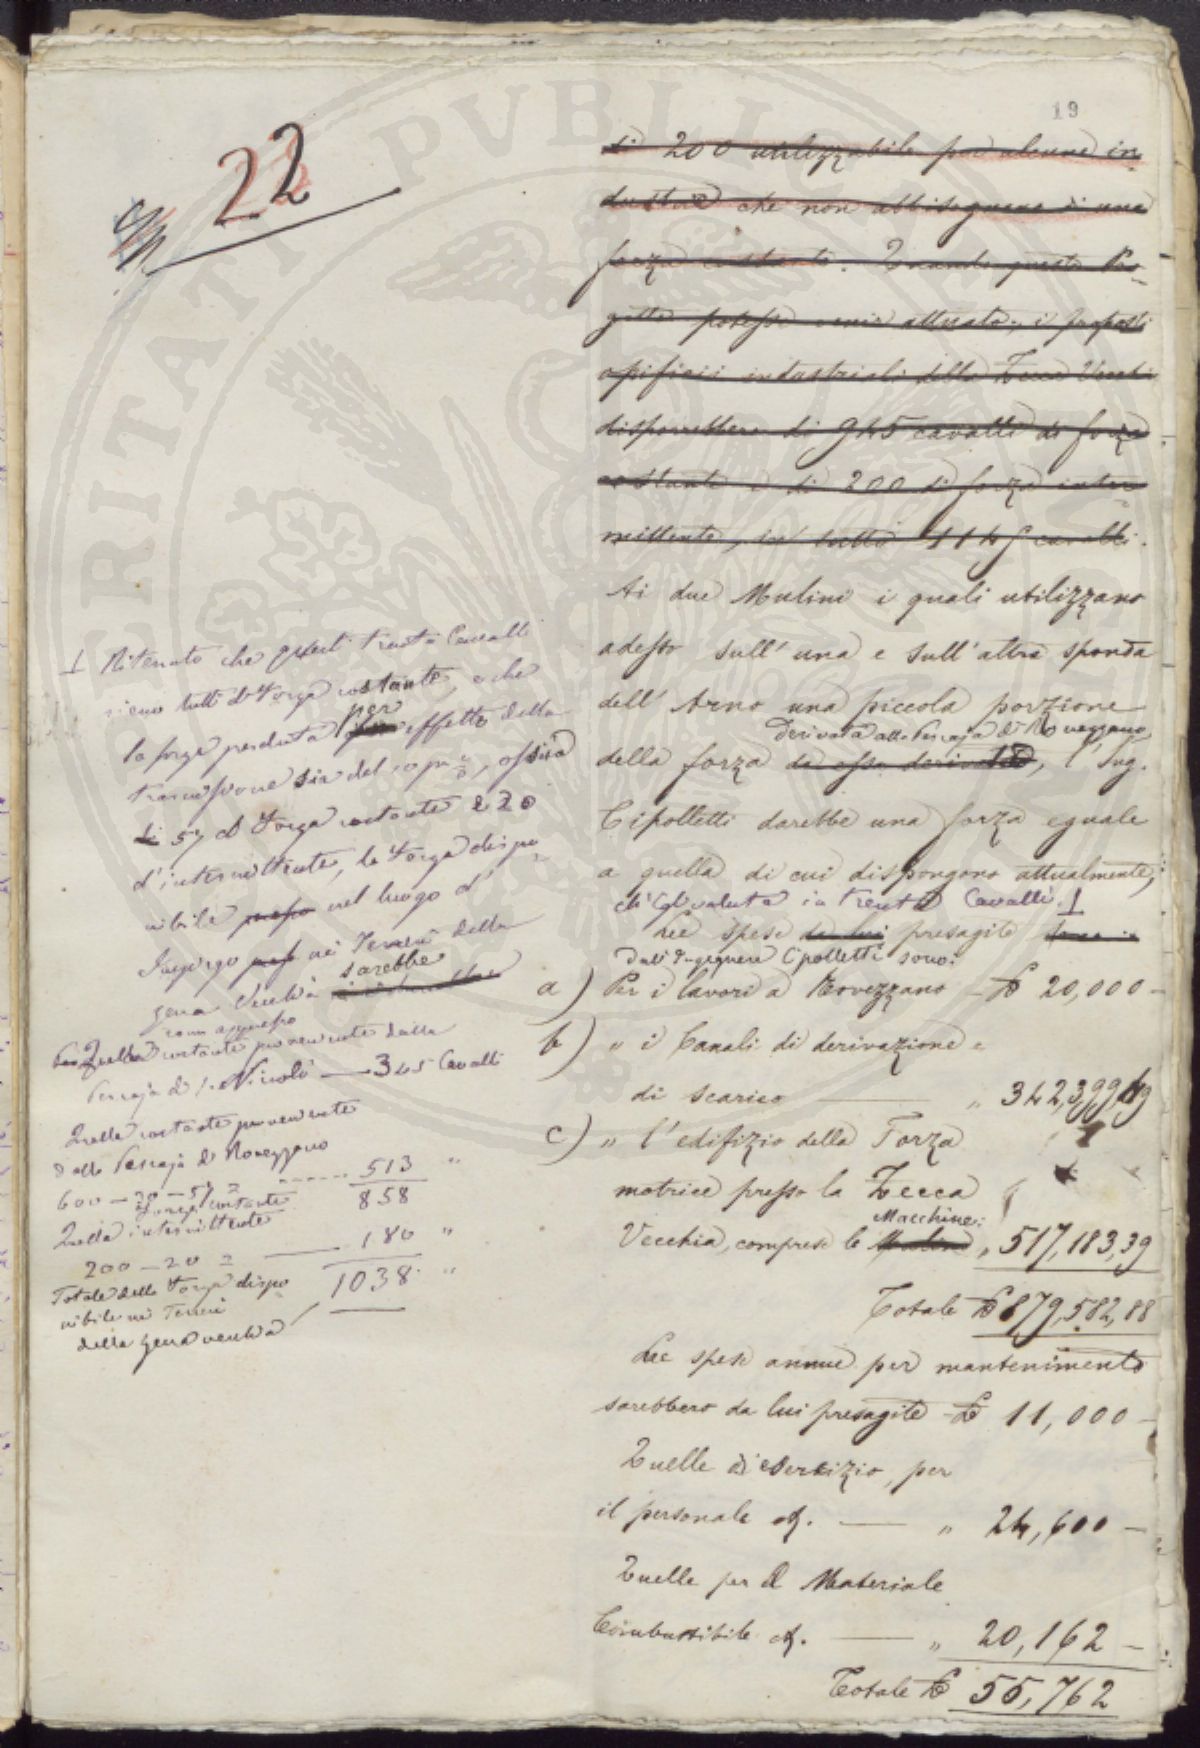 19
22
di 200 utilizzabile per alcune in-
dustrie che non abbisognano di una
forza costante. Quando questo Pro-
getto potesse venir attuato, i proposti
opificii industriali della Zecca Vecchia
disporrebbero di 945 cavalli di forza
costante e di 200 di forza inter-
mittente, in tutto 1145 cavalli.
Ai due Mulini i quali utilizzano
adesso sull' una e sull' altra sponda
dell' Arno una piccola porzione
derivata alla Pescaja di Rovezzano
della forza da esso derivata, l' Ing.
Cipolletti darebbe una forza eguale
a quella di cui dispongono attualmente,
ch' egli valuta in trenta Cavalli. 1
Le spese da lui presagite
dall' Ingegnere Cipolletti sono:
a) Per i lavori a Rovezzano — £ 20,000 —
b) " i Canali di derivazione e
di scarico — " 342,399,49
c) " l' edifizio della Forza
motrice presso la Zecca
Macchine:
Vecchia, comprese le Mulina " 517,183,39
Totale £ 879,582,88
Le spese annue per mantenimento
sarebbero da lui presagite £ 11,000 —
Quelle di esercizio, per
il personale — " 24,600 —
Quelle per il Materiale
Combustibile — " 20,162 —
Totale £ 55,762
1 Ritenuto che questi trenta Cavalli
sieno tutti di forza costante, e che
per
la forza perduta effetto della
trasmissione sia del 10 p%, ossia
di 57 di forza costante e 20
d' intermittente, la forza dispo-
nibile presso nel luogo d'
Impiego nei Terreni della
sarebbe
Zecca Vecchia
come appresso
Quella costante proveniente dalla
Pescaja di S. Niccolò — 345 Cavalli
Quella costante proveniente
dalla Pescaja di Rovezzano
600 — 30 — 57 = 513 "
forza costante 858
Quella intermittente
200 — 20 = 180 "
Totale della forza dispo 1038 "
nibile nei Terreni
della Zecca vecchia